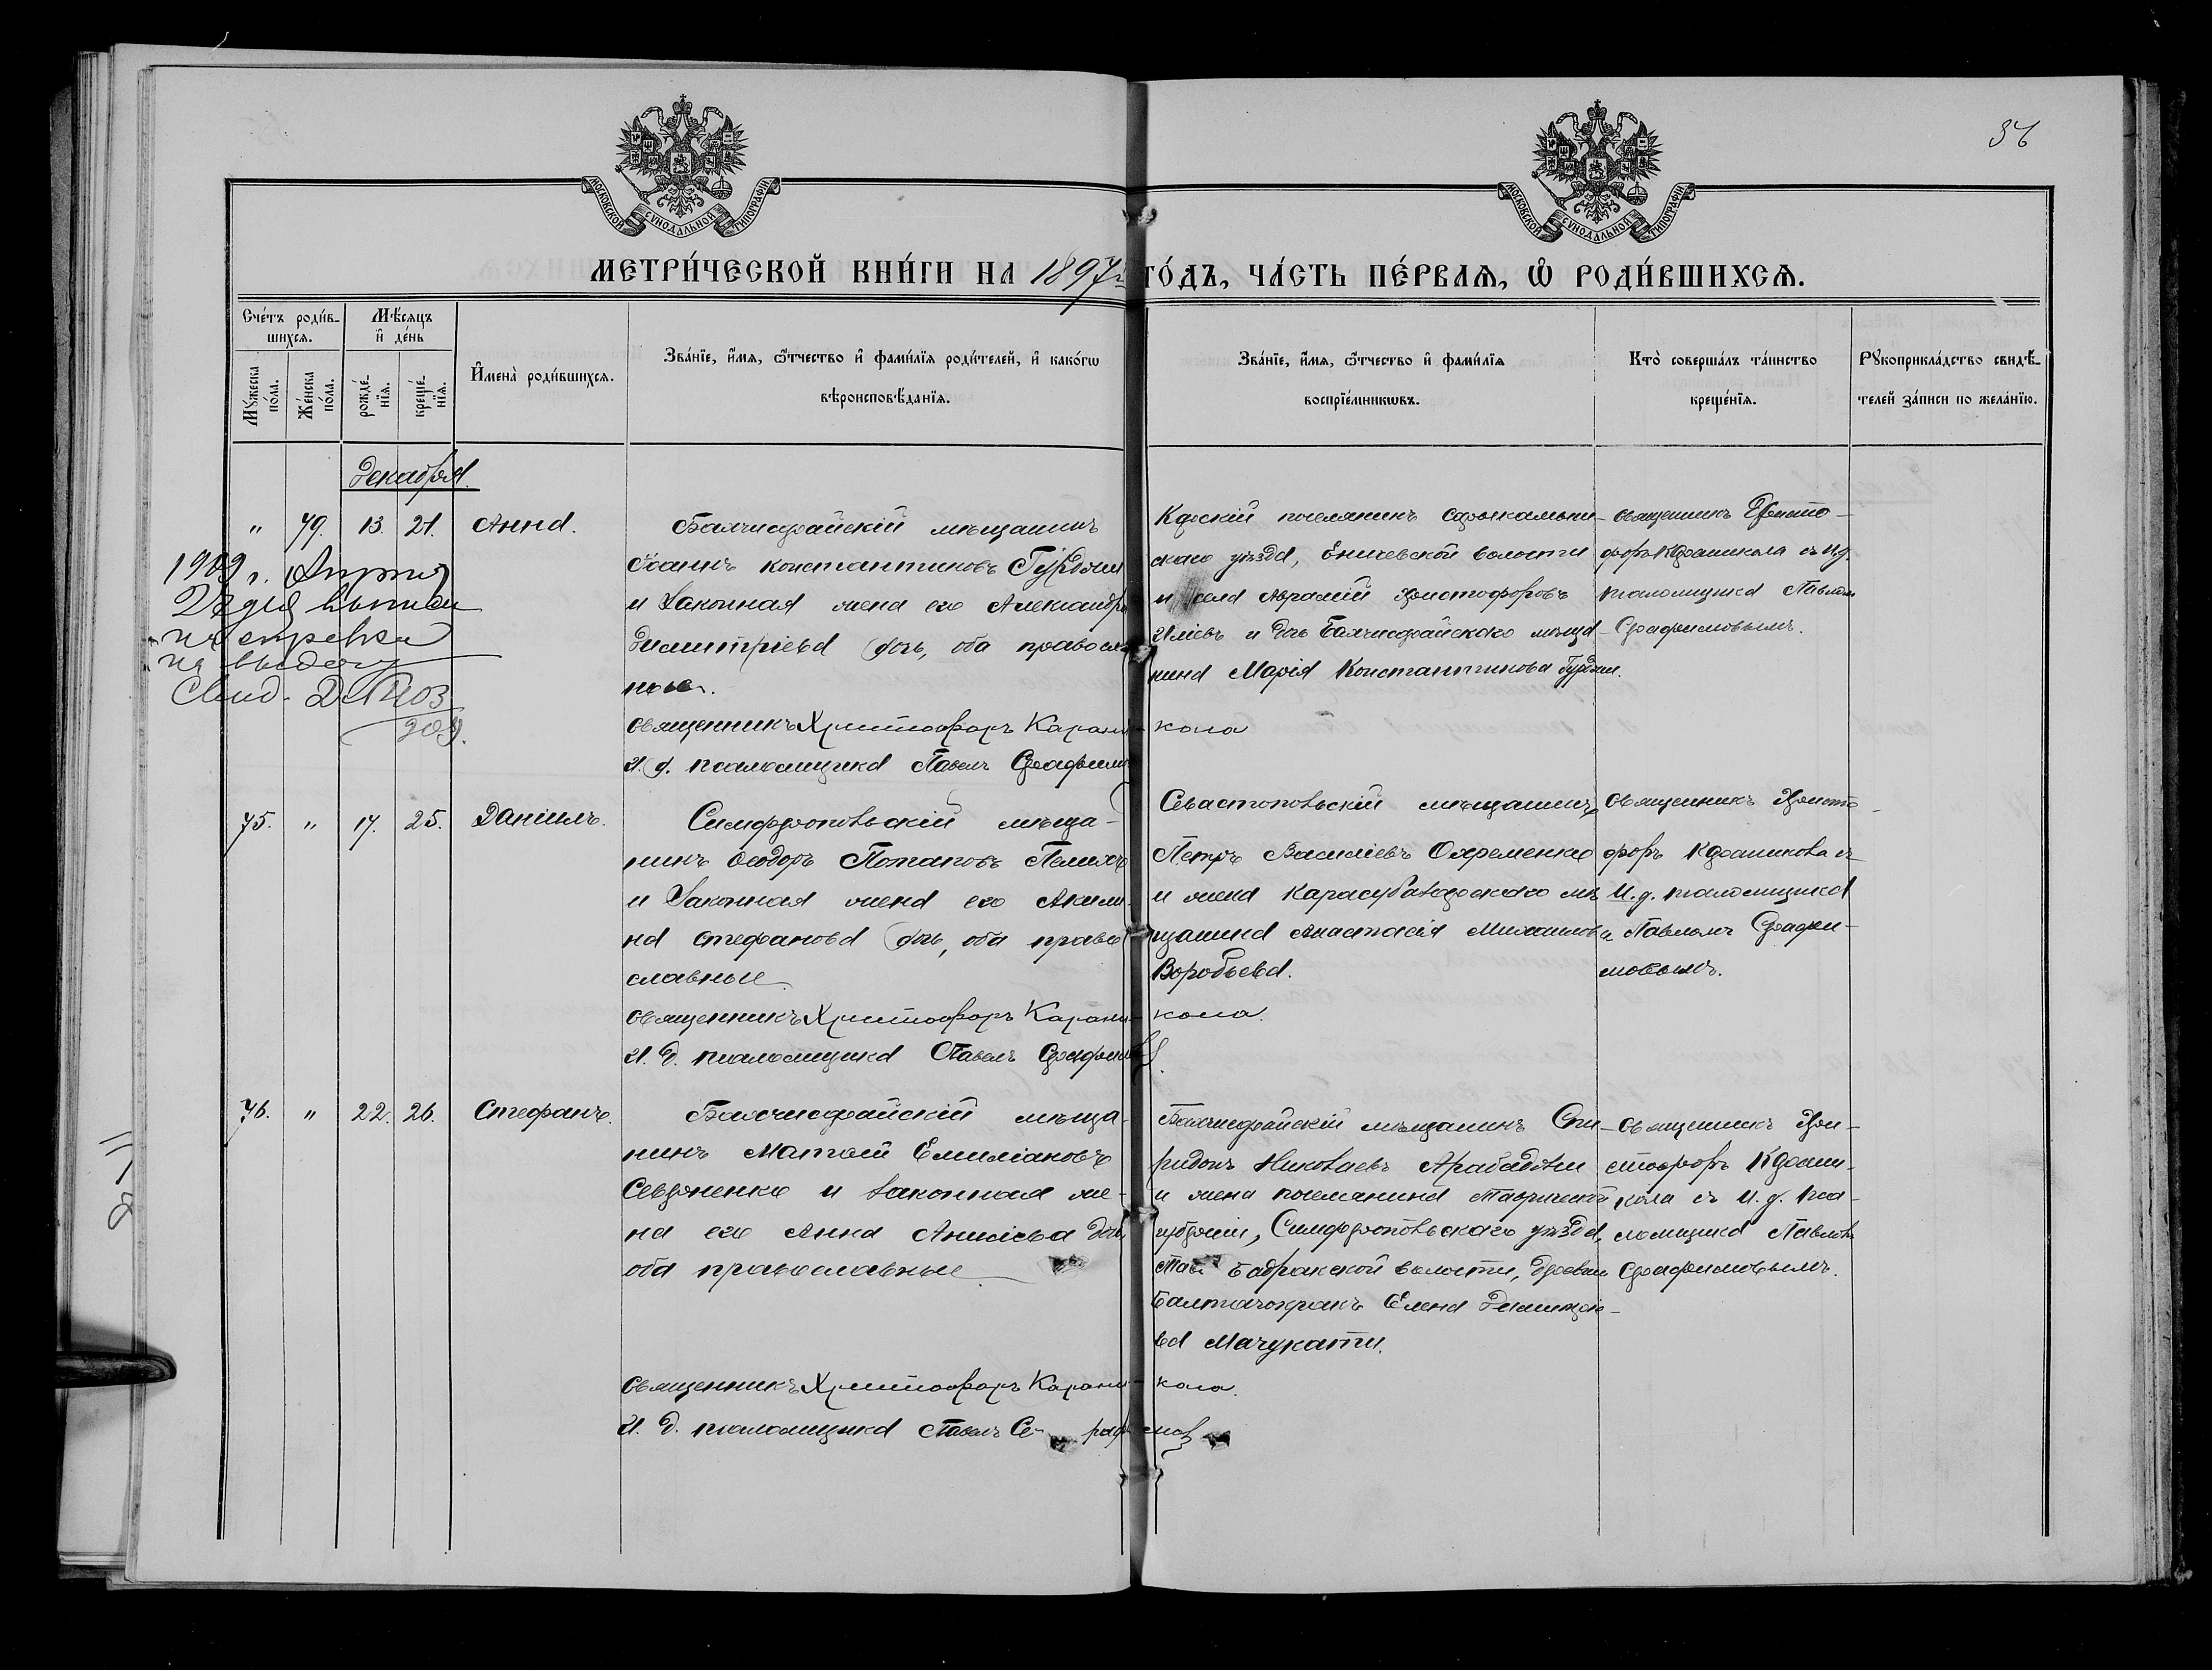 МОСКОВСКОЙ СѴНОДАЛЬНОЙ ТИПОГРАФІИ
МОСКОВСКОЙ СѴНОДАЛЬНОЙ ТИПОГРАФІИ
МЕТРИ́ЧЕСКОЙ КНИ́ГИ НА 1897й ГО́ДЪ, ЧА́СТЬ ПЕ́РВАЯ, Ѡ҆ РОДИ́ВШИХСѦ.
Сче́тъ роди́в-
шихсѧ.
Мѣ́сяцъ
и҆ де́нь
Мꙋ́жеска по́ла.
Же́нска по́ла.
рожде́-нїѧ.
креще́-нїѧ.
И҆мена̀ роди́вшихсѧ.
Зва́нїе, и҆́мѧ, ѻ҆́тчество и҆ фами́лїѧ роди́телей, и҆ како́гѡ
вѣроисповѣ́данїѧ.
Зва́нїе, и҆́мѧ, ѻ҆́тчество и҆ фами́лїѧ
воспрїе́мникѡвъ.
Кто̀ соверша́лъ та́инство
креще́нїѧ.
Рꙋкоприкла́дство свидѣ́-
телей за́писи по жела́нїю.
Декабря.
" 79. 13. 21. Анна.
Бахчисарайскій мѣщанинъ
Іоаннъ Константиновъ Гурджи
и законная жена его Александра
Димитріева дочь, оба православ
ные.
Священникъ Христофоръ Карани-кола
И. д. псаломщика Павелъ Серафимовъ
Карскій поселянинъ
скаго уѣзда, волости
и села Аврамій Христофоровъ
Иліевъ и дочь Бахчисарайскаго мѣща-
нина Марія Константинова Гурджи.
Священникъ Христо-
форъ Караникола съ и. д.
псаломщика Павломъ
Серафимовымъ.
1909 г.
выписи
на выдачу
Свид. № 203
909.
75. " 17. 25. Даніилъ.
Симферопольскій мѣща-
нинъ Ѳеодоръ Потаповъ
и законная жена его Акили-
на Стефанова дочь, оба право
славные.
Священникъ Христофоръ Карани-кола.
И. д. псаломщика Павелъ Серафимовъ
Севастопольскій мѣщанинъ
Петръ Василіевъ Охременко
и жена Карасубазарскаго мѣ
щанина Анастасія Михаилова
Воробьева.
Священникъ Христо-
форъ Караникола съ
и. д. псаломщика
Павломъ Серафи-
мовымъ.
76. " 22. 26. Стефанъ.
Бахчисарайскій мѣща-
нинъ Матѳій Емиліановъ
и законная же-
на его Анна дочь,
оба православные
Священникъ Христофоръ Карани-кола.
И. д. псаломщика Павелъ Се-рафимовъ
Бахчисарайскій мѣщанинъ Спи-
ридонъ Николаевъ Арабаджи
и жена поселянина Таврической
губерніи, Симферопольскаго уѣзда,
волости, деревни
Елена Димитріе-
ва Мачукати.
Священникъ Хри-
стофоръ Карани-
кола съ и. д. пса-
ломщика Павломъ
Серафимовымъ.